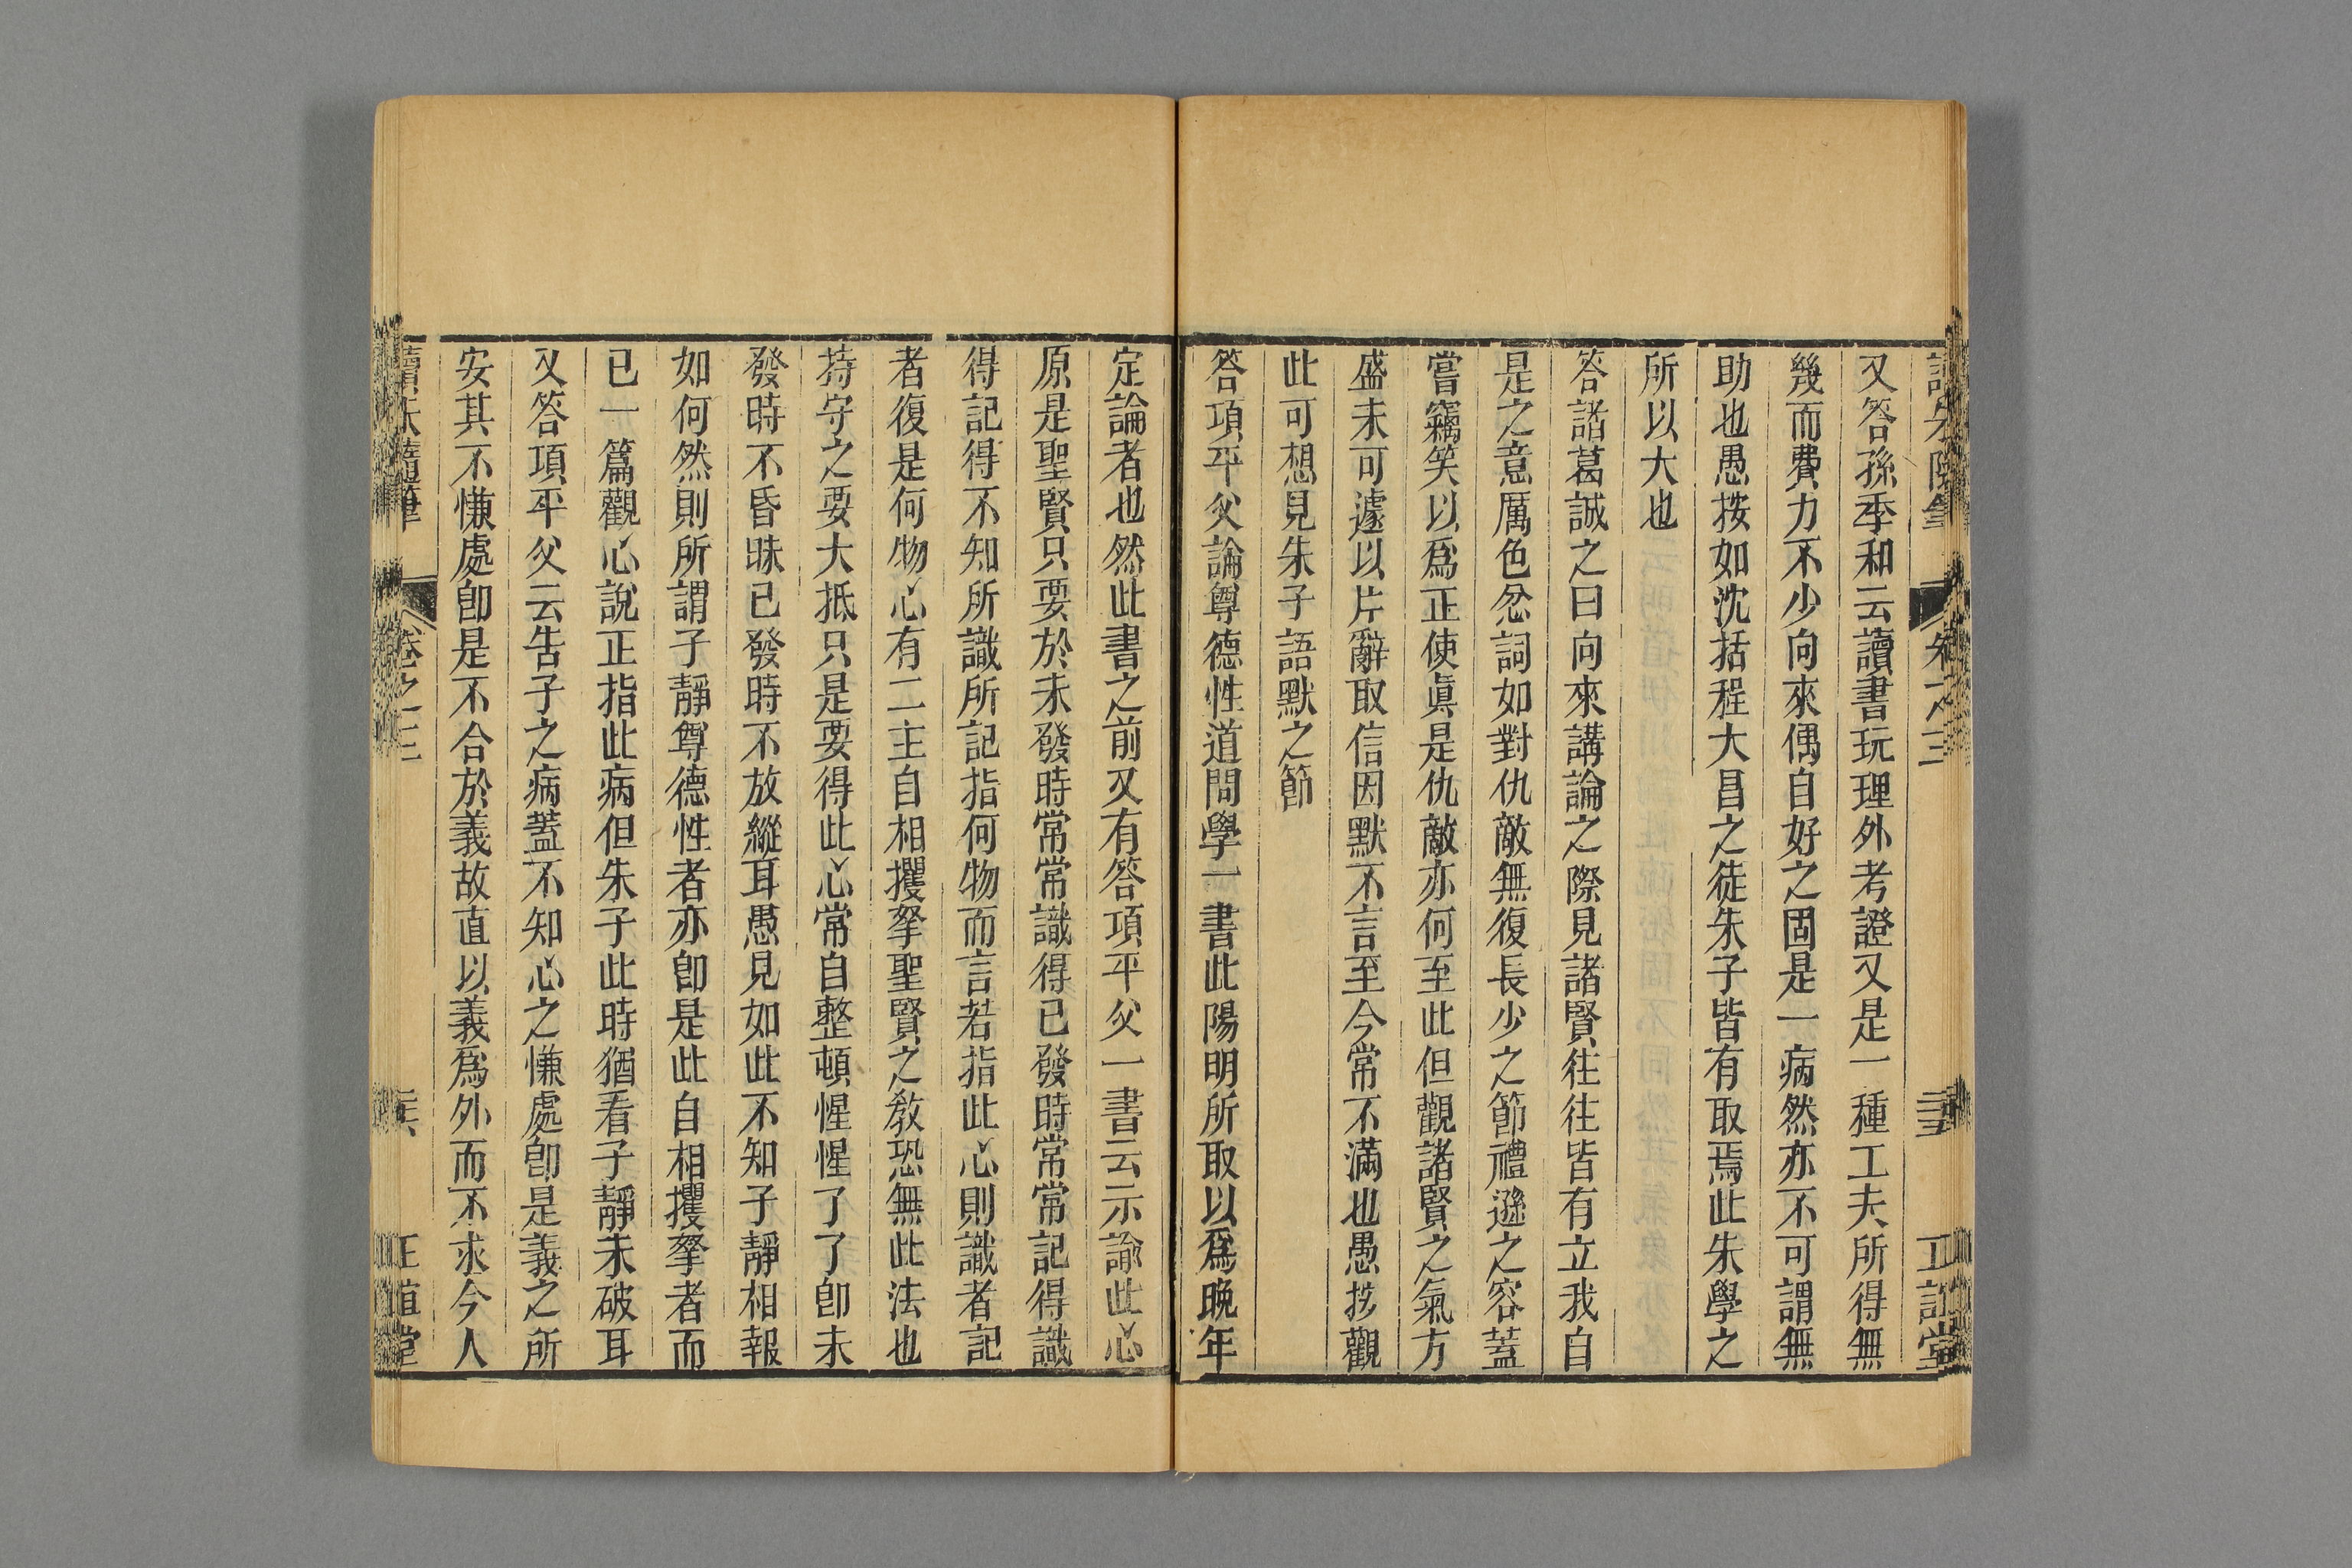 又答孫季和云讀書玩理外考證又是一種工夫所得無
幾而費力不少向來偶自好之固是一病然亦不可謂無
助也愚按如沈括程大昌之徒朱子皆有取焉此朱學之
所以大也
答諸葛誠之曰向來講論之際見諸賢往往皆有立我自
是之意厲色忿詞如對仇敵無復長少之節禮遜之容蓋
嘗竊笑以爲正使眞是仇敵亦何至此但觀諸賢之氣方
盛未可遽以片辭取信因默不言至今常不滿也愚按觀
此可想見朱子語默之節
答項平父論尊德性道問學一書此陽明所取以爲晚年
定論者也然此書之前又有答項平父一書云示諭此心
原是聖賢只要於未發時常常識得已發時常常記得識
得記得不知所識所記指何物而言若指此心則識者記
者復是何物心有二主自相攫拏聖賢之敎恐無此法也
持守之要大抵只是要得此心常自整頓惺惺了了卽未
發時不昏昧已發時不放縱耳愚見如此不知子靜相報
如何然則所謂子靜尊德性者亦卽是此自相攫拏者而
已一篇觀心說正指此病但朱子此時猶看子靜未破耳
又答項平父云告子之病蓋不知心之慊處卽是義之所
安其不慊處卽是不合於義故直以義爲外而不求今人
讀朱隨筆 卷之三 正誼堂